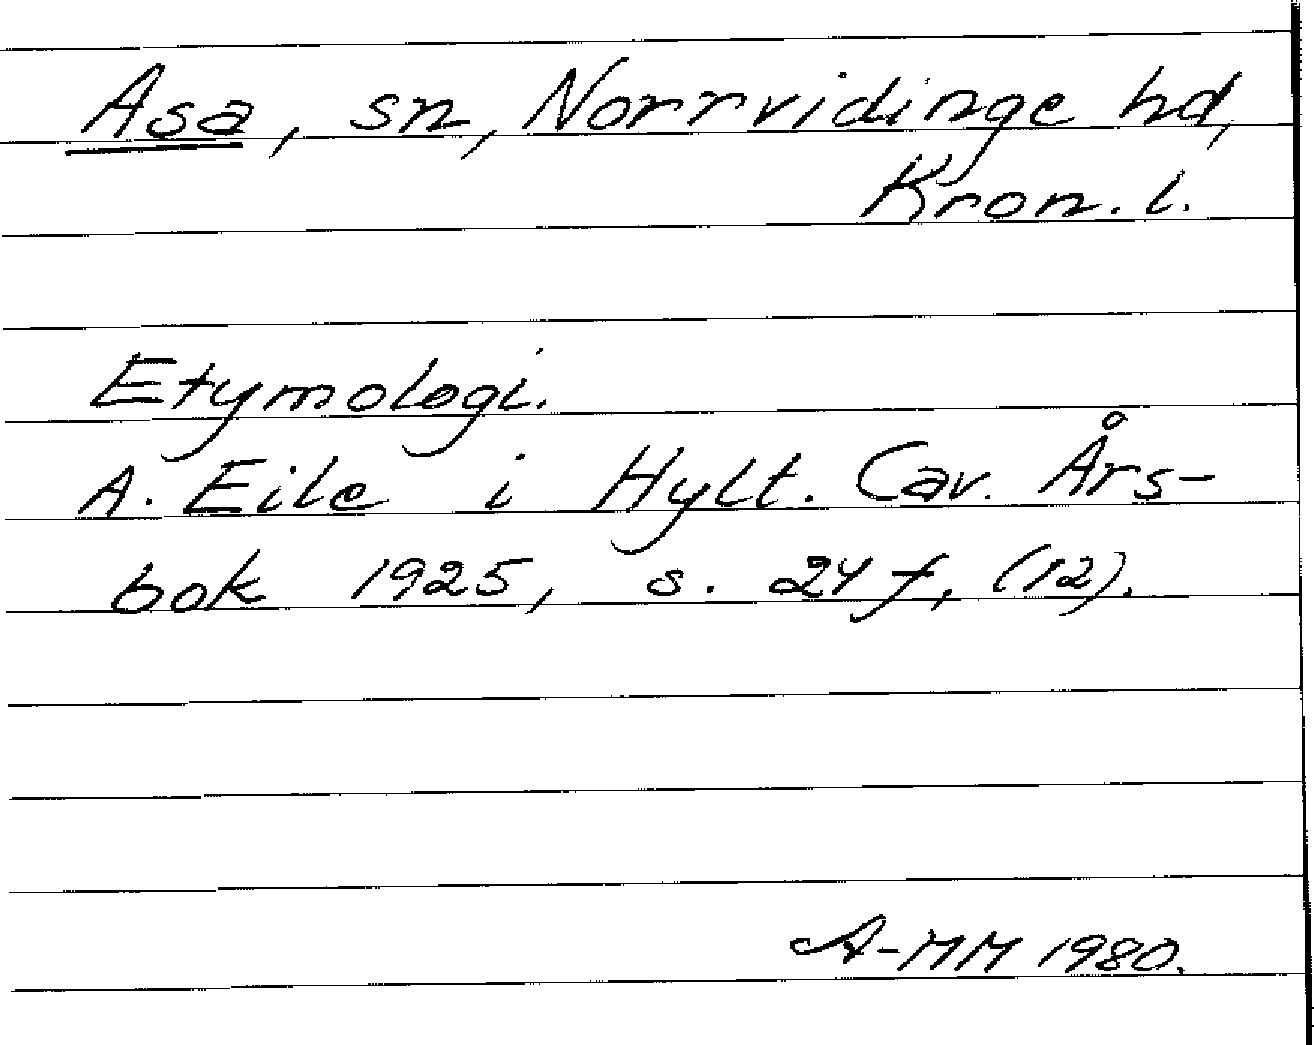 Asa, sn, Norrvidinge hd,
Kron. l.
Etymologi.
A. Eile i Hylt. Cav. Års-
bok 1925, s. 24 f, (12).
A-MM 1980.